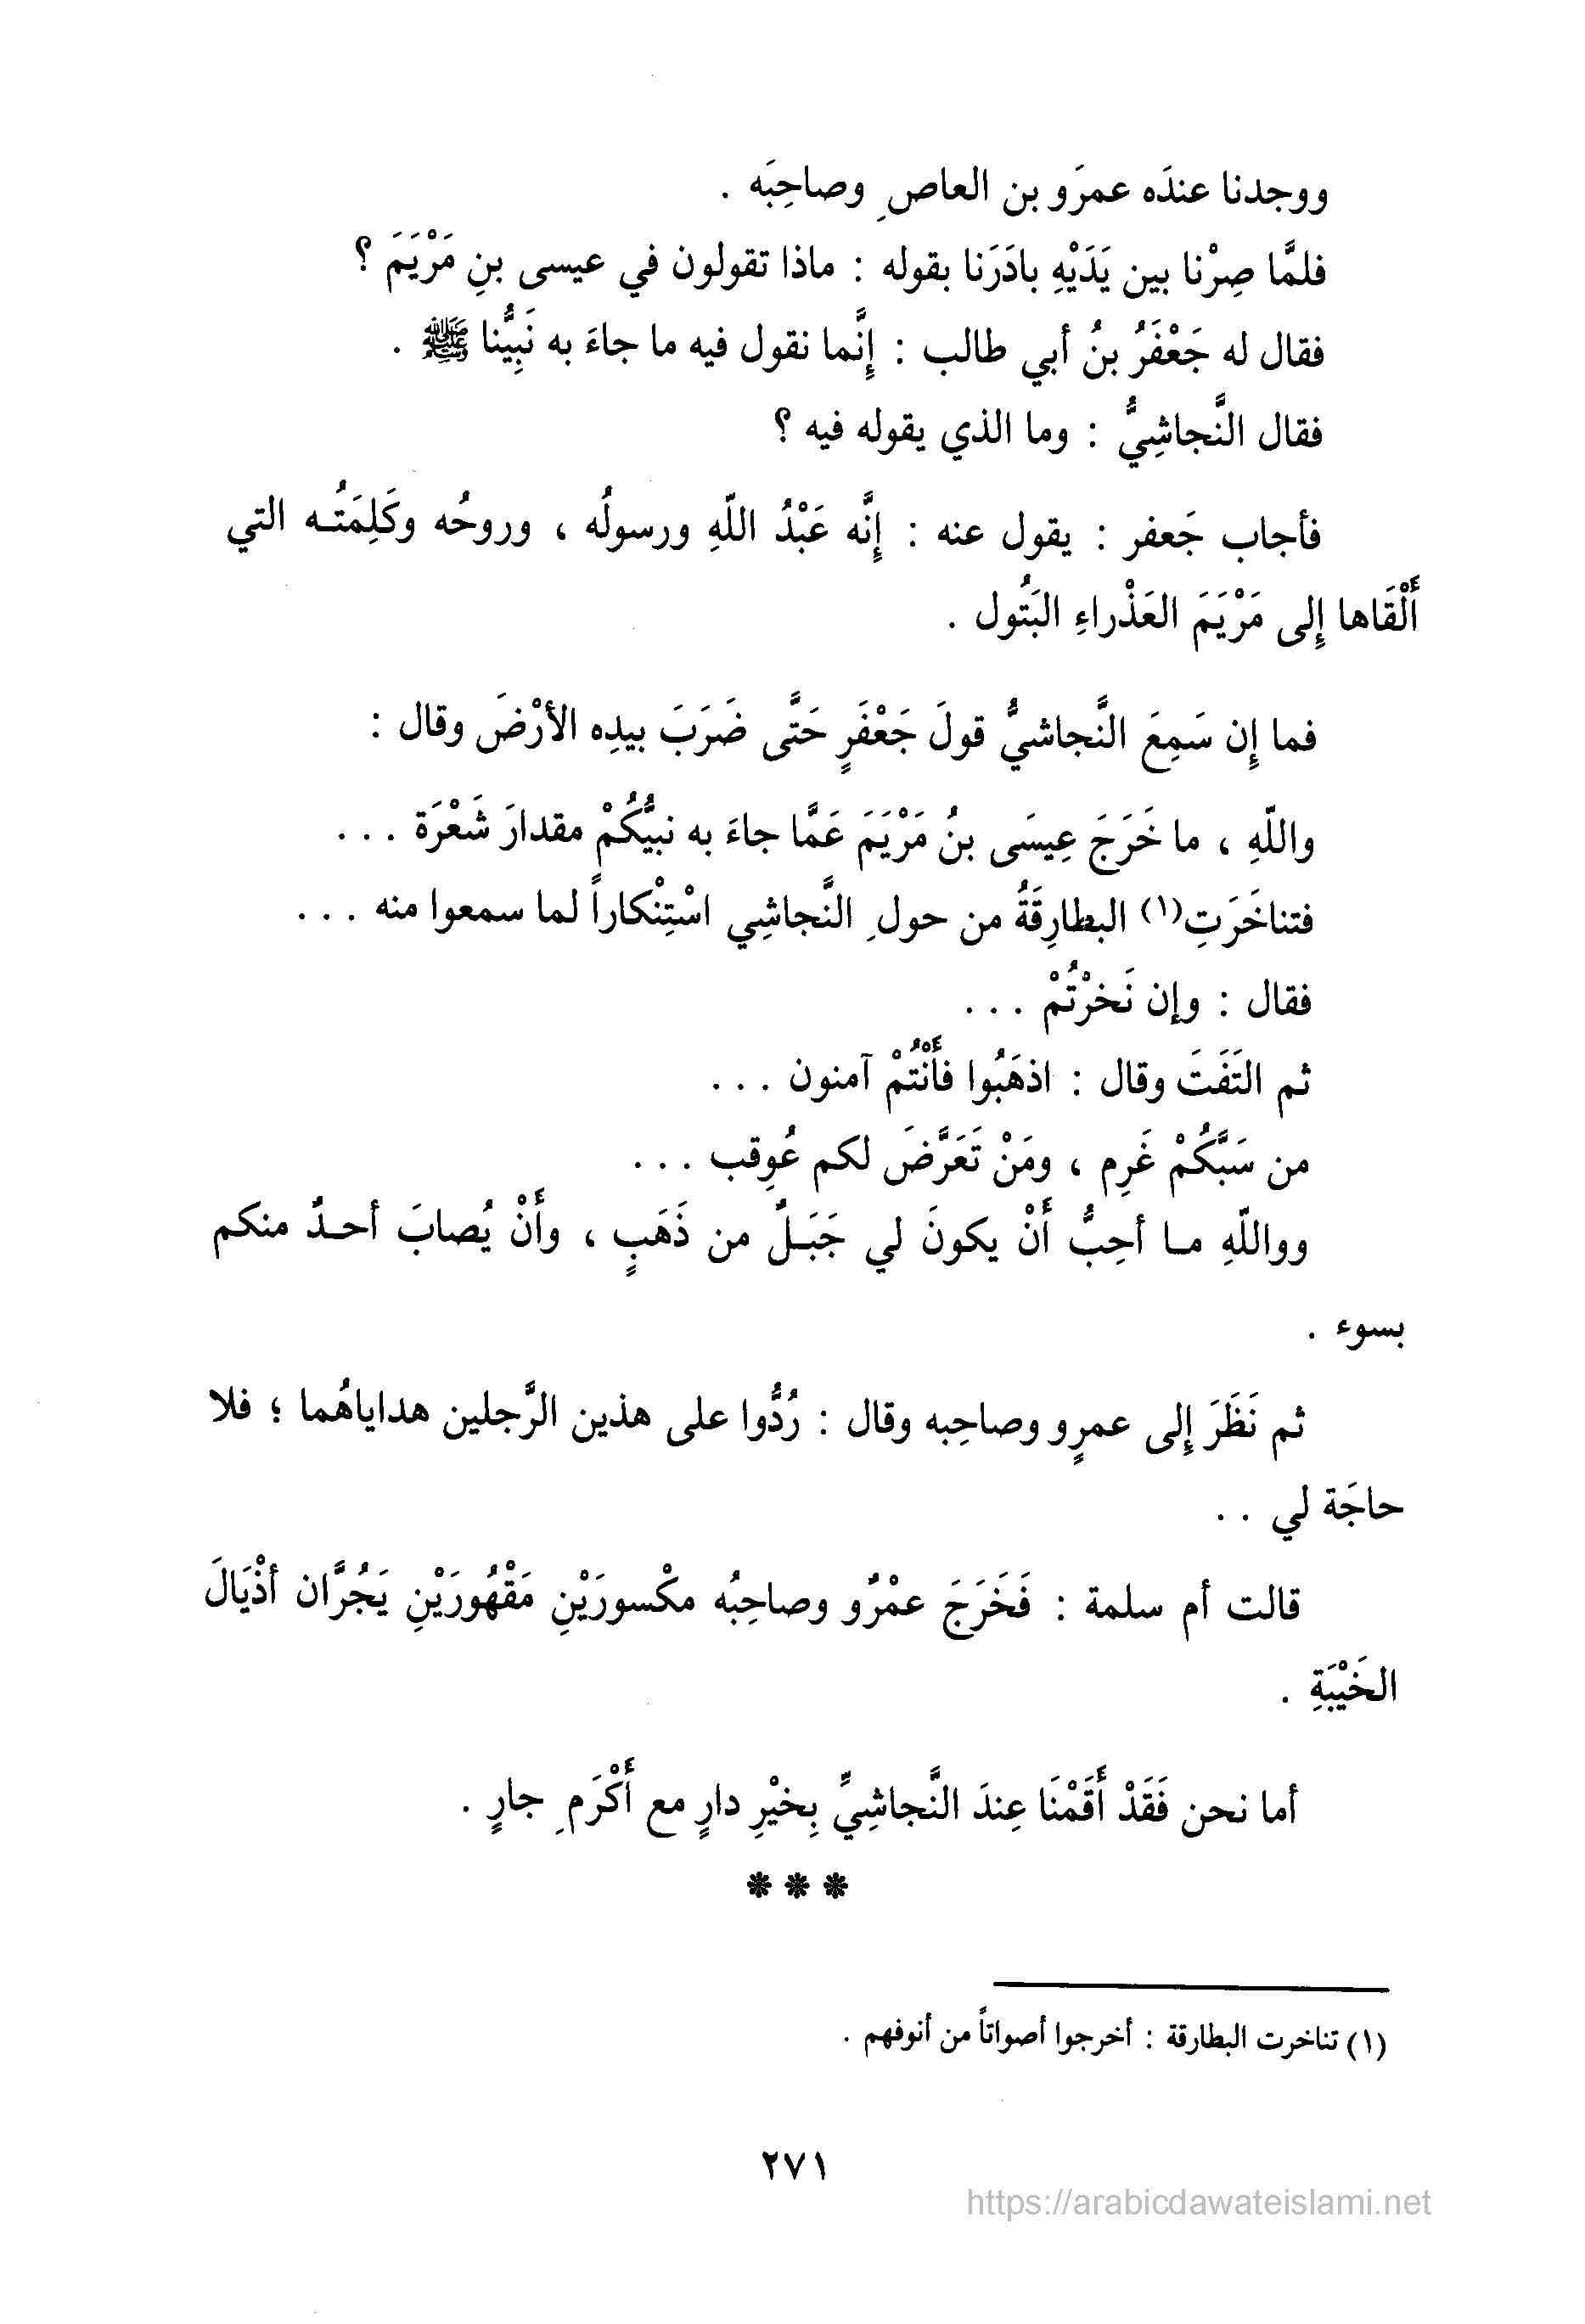 ووجدنا عندَه عمرَو بن العاصِ وصاحِبَه .
فلمَّا صِرْنا بين يَدَيْهِ بادَرَنا بقوله : ماذا تقولون في عيسى بنِ مَرْيَمَ ؟
فقال له جَعْفَرُ بنُ أبي طالب : إِنَّما نقول فيه ما جاءَ به نَبِيُّنا ﷺ .
فقال النَّجاشِيُّ : وما الذي يقوله فيه ؟
فأجاب جَعفر : يقول عنه : إِنَّه عَبْدُ اللّهِ ورسولُه ، وروحُه وكَلِمَتُـه التي
أَلْقَاها إِلى مَرْيَمَ العَذْراءِ البَتُول .
فما إِن سَمِعَ النَّجاشيُّ قولَ جَعْفَرٍ حَتَّى ضَرَبَ بيدِه الأرْضَ وقال :
واللّهِ ، ما خَرَجَ عِيسَى بنُ مَرْيَمَ عَمَّا جاءَ به نبيُّكُمْ مقدارَ شَعْرَة . . .
فتناخَرَتِ(١) البطارِقَةُ من حولِ النَّجاشِي اسْتِنْكاراً لما سمعوا منه . . .
فقال : وإن نَخرْتُمْ . . .
ثم التَفَتَ وقال : اذهَبُوا فأَنْتُمْ آمنون . . .
من سَبَّكُمْ غَرِم ، ومَنْ تَعَرَّضَ لكم عُوِقب . . .
وواللّهِ مـا أحِبُّ أَنْ يكونَ لي جَبَـلٌ من ذَهَبٍ ، وأَنْ يُصابَ أحـدٌ منكم
بسوء .
ثم نَظَرَ إِلى عمرٍو وصاحِبه وقال : رُدُّوا على هذين الرَّجلين هداياهُما ؛ فلا
حاجَة لي . .
قالت أم سلمة : فَخَرَجَ عمْرٌو وصاحِبُه مكْسورَيْنِ مَقْهُورَيْنِ يَجُرَّان أذْيَالَ
الخَيْبَةِ .
أما نحن فَقَدْ أَقَمْنَا عِندَ النَّجاشِيِّ بِخيْرِ دارٍ مع أَكْرَمِ جارٍ .
***
(١) تناخرت البطارقة : أخرجوا أصواتاً من أنوفهم .
٢٧١
https://arabicdawateislami.net